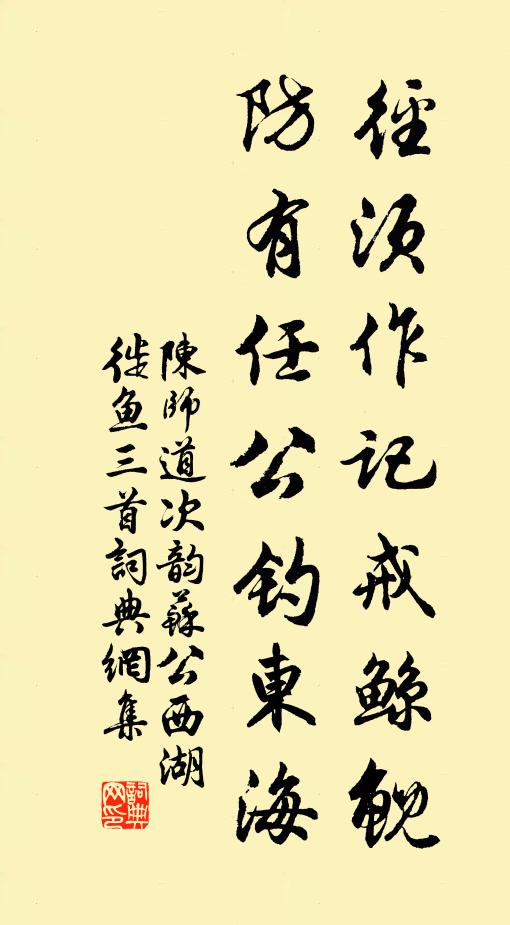 徑須作記戒鯨鯢
防有任公釣東海
陳師道次韵蘇公西湖
徙魚三首詞典網集
詞典网印